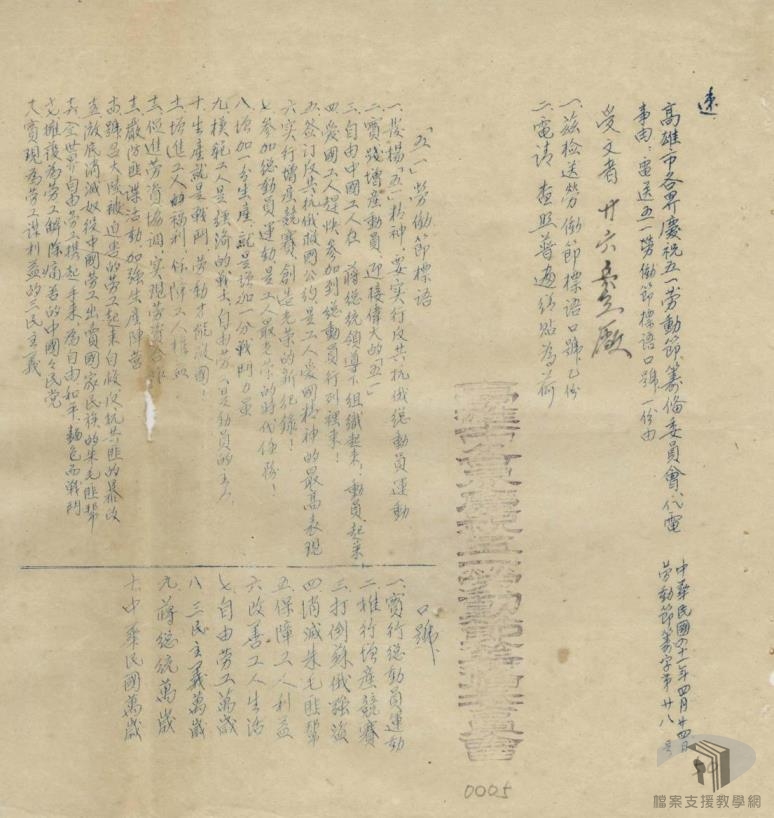 速
高雄市各界慶祝五一劳動節籌備委員會代電
中華民國四十一年四月廿四日
劳動節籌字第廿八号
事由：電送五一勞働節標語口號一份由
受文者 廿六 廠
一、茲检送勞働節標語口號乙份
二、電請 查照普遍張貼為荷
高雄市各界慶祝五一勞動節籌備委員會
「五一」勞働節標語
一、發揚「五一」精神，要实行反共抗俄總動員運動
二、實踐增產動員，迎接偉大的「五一」
三、自由中國工人在 蔣總統領導下組織起來，動員起來
四、愛國工人趕快參加到總動員行列裡來！
五、簽訂反共抗俄救國公約是工人愛國精神的最高表現
六、实行增產競賽，創造光荣的新纪錄！
七、參加總動員運動是工人最光荣的時代任務！
八、增加一分生產，就是增加一分戰鬥力量
九、模範工人是經濟的戰士，自由劳人是動員的主力
十、生產就是戰鬥，劳動才能救國！
十一、增進工人的福利，保障工人權益
十二、促進劳資協調，实現劳資合作
十三、嚴防匪諜活動加强生產陣营
十四、號召大陸被迫害的劳工起來自救反抗共匪的暴政
十五、澈底消滅奴役中國劳工出賣國家民族的朱毛匪幫
十六、全世界自由劳工携起手來，為自由和平，麵包而戰鬥
十七、擁護為勞工解除痛苦的中國々民党
十八、實現為劳工謀利益的三民主義
口號
一、實行總動員運動
二、推行增產競賽
三、打倒蘇俄强盗
四、消滅朱毛匪幫
五、保障工人利益
六、改善工人生活
七、自由劳工萬歲
八、三民主義萬歲
九、蔣總統萬歲
十、中華民國萬歲
0005
檔案支援教學網